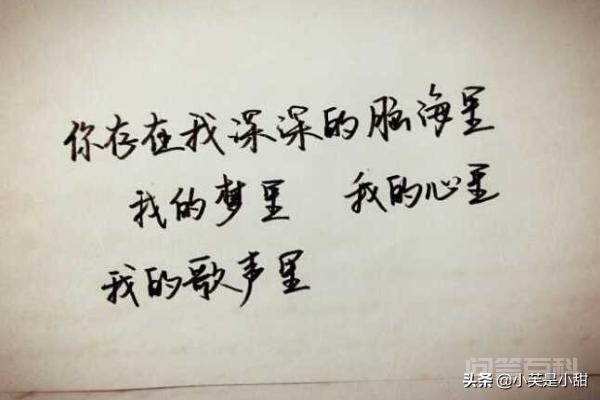 你存在我深深的脑海里
我的梦里 我的心里
我的歌声里
问答百科
头条 @小芙是小甜